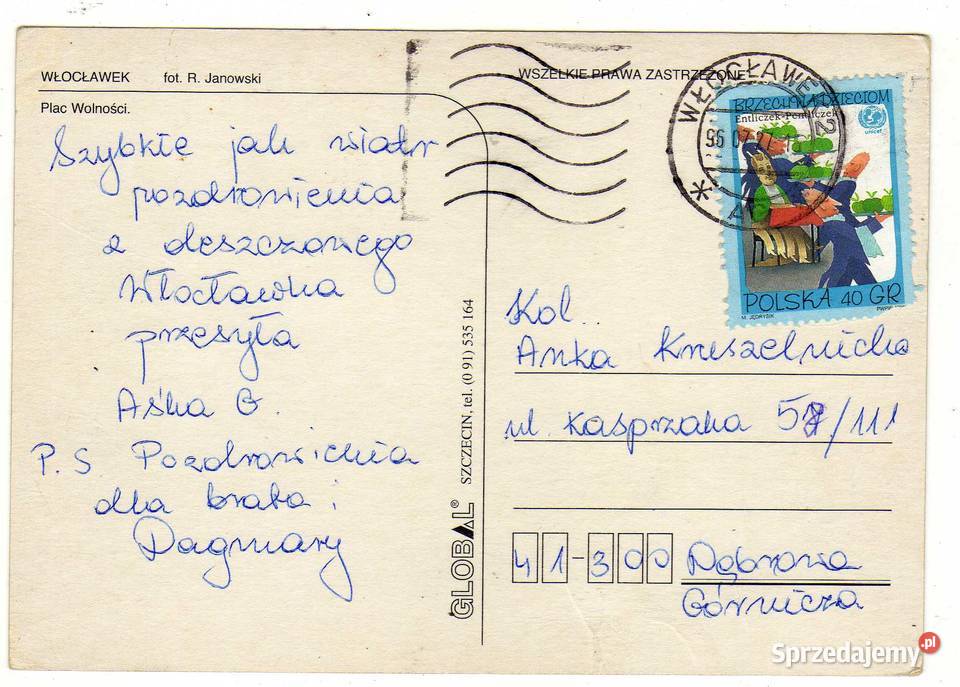 WŁOCŁAWEK fot. R. Janowski
Plac Wolności.
Szybkie jak wiatr
pozdrowienia
z deszczowego
Włocławka
przesyła
Aśka G.
P. S. Pozdrowienia
dla brata i
Dagmary
GLOBAL® SZCZECIN, tel. (0 91) 535 164
WSZELKIE PRAWA ZASTRZEŻONE
WŁOCŁAWEK 2
BRZECHWA DZIECIOM
Entliczek-Pentliczek
unicef
POLSKA 40 GR
M. JĘDRYSIK
PWPW
Kol.
Anka Kreszelnicka
ul. Kasprzaka 58/111
41-300 Dąbrowa
Górnicza
Sprzedajemy.pl